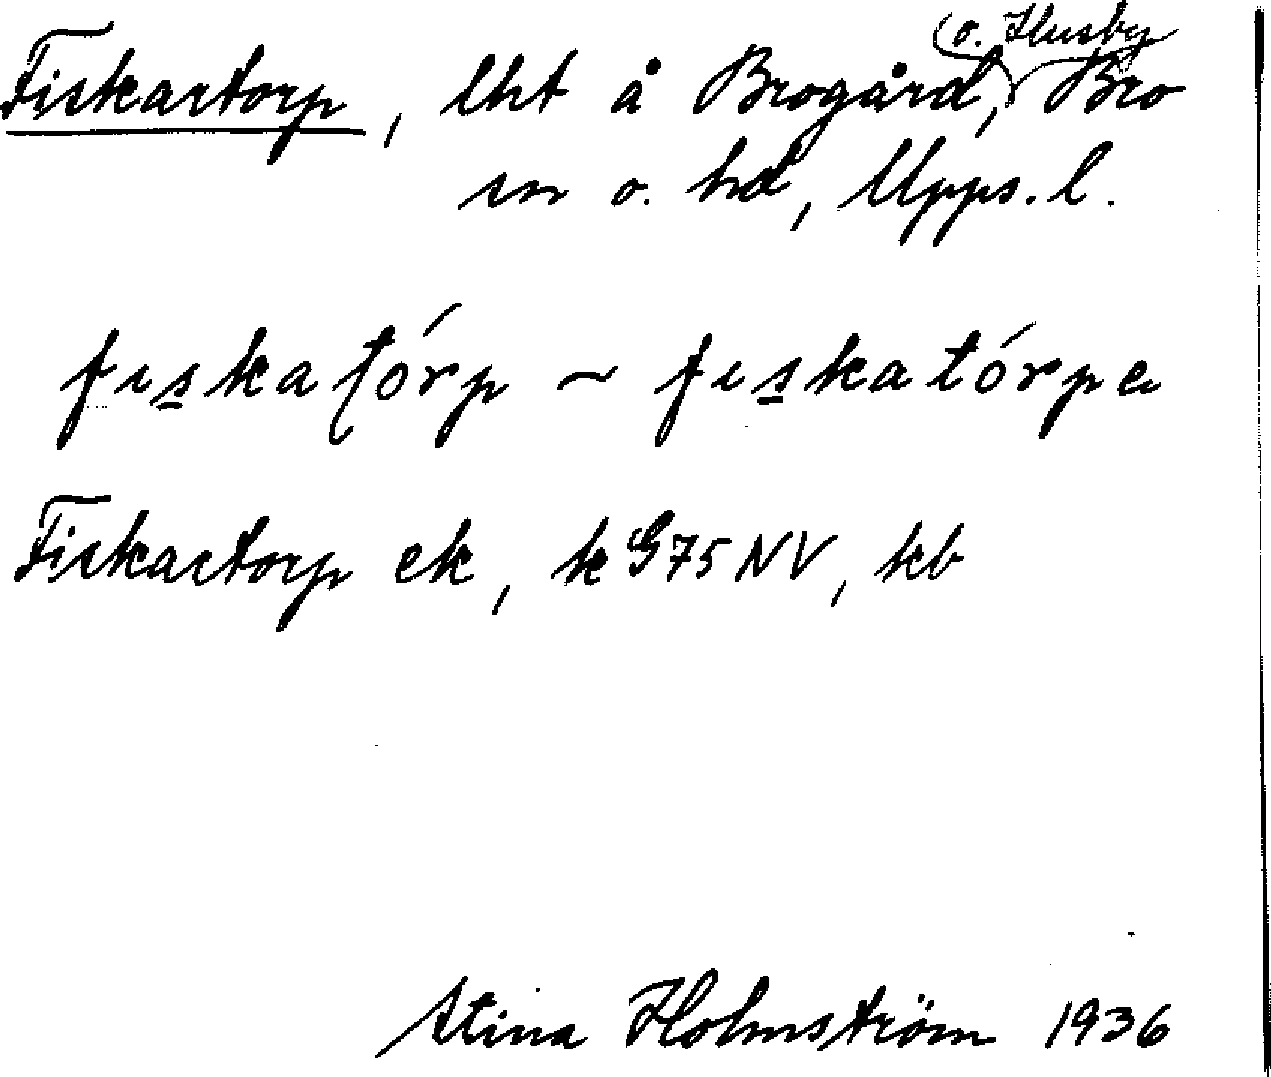 Fiskartorp, lht å Brogård (o. Husby), Bro
sn o. hd, Upps. l.
fıs̲kaʈórp ~ fıs̲katórpe
Fiskartorp ek, k G75 NV, kb
Stina Holmström 1936